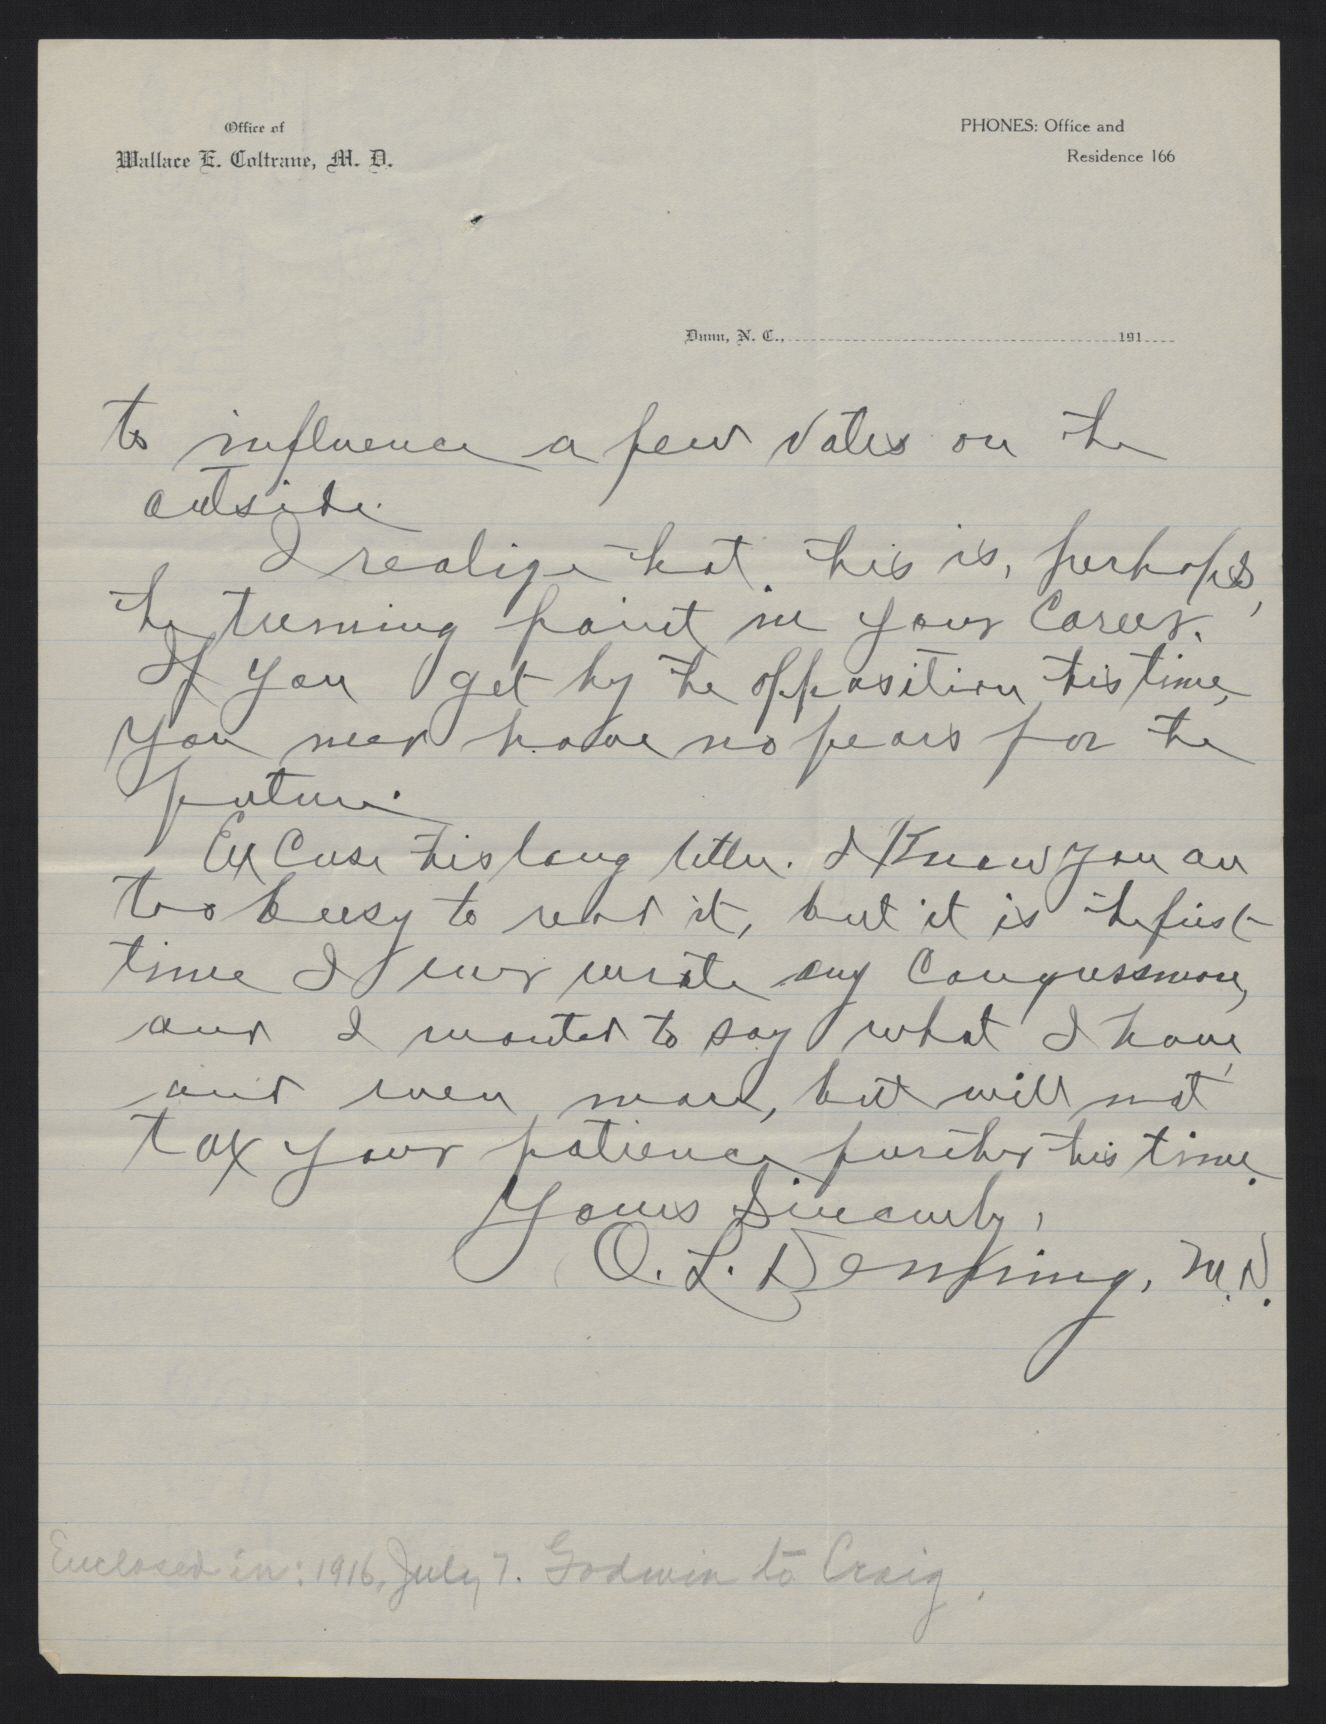 Office of
Wallace E. Coltrane, M. D.
PHONES: Office and
Residence 166
Dunn, N. C., 191
to influence a few votes on the
outside.
I realize that this is, perhaps,
the turning point in your career.
If you get by the opposition this time,
you need have no fears for the
future.
Excuse this long letter. I know you are
too busy to read it, but it is the first
time I ever wrote any Congressman,
and I wanted to say what I have,
and even more, but will not
tax your patience further this time.
Yours Sincerely,
O. L. Denning, M.D.
Enclosed in: 1916, July 7. Godwin to Craig.